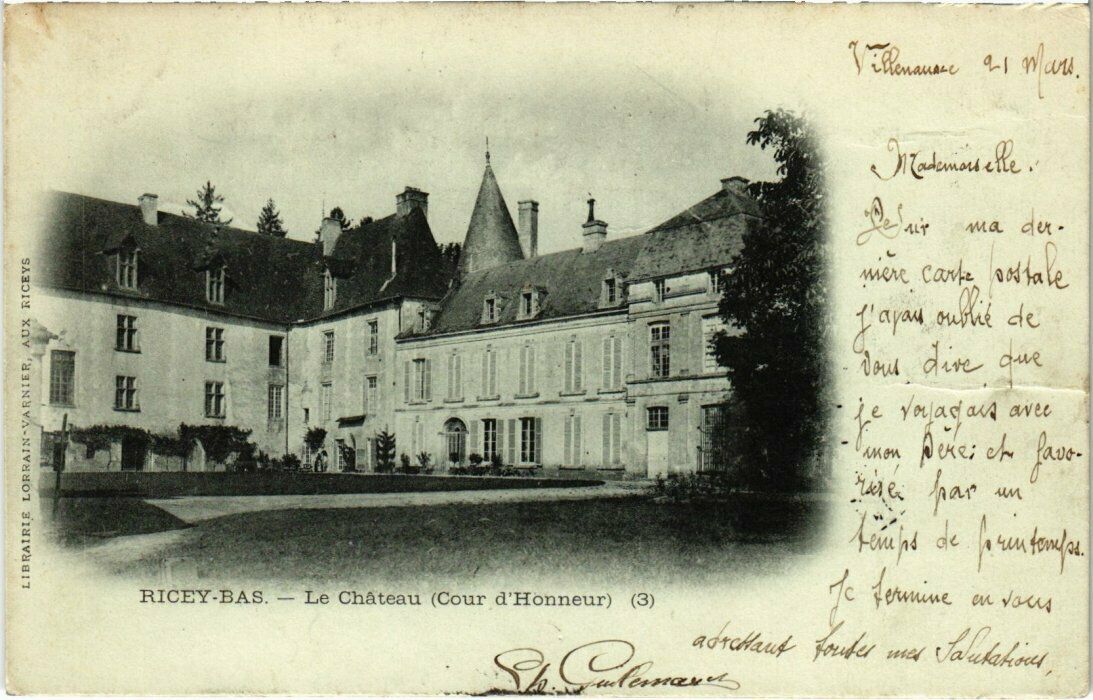 Villenauxe 21 Mars.
Mademoiselle.
Sur ma der-
nière carte postale
j'avais oublié de
vous dire que
je voyageais avec
mon Père; et favo-
risé par un
temps de printemps.
Je termine en vous
adressant toutes mes Salutations.
LIBRAIRIE LORRAIN-VARNIER, AUX RICEYS
RICEY-BAS. — Le Château (Cour d'Honneur) (3)